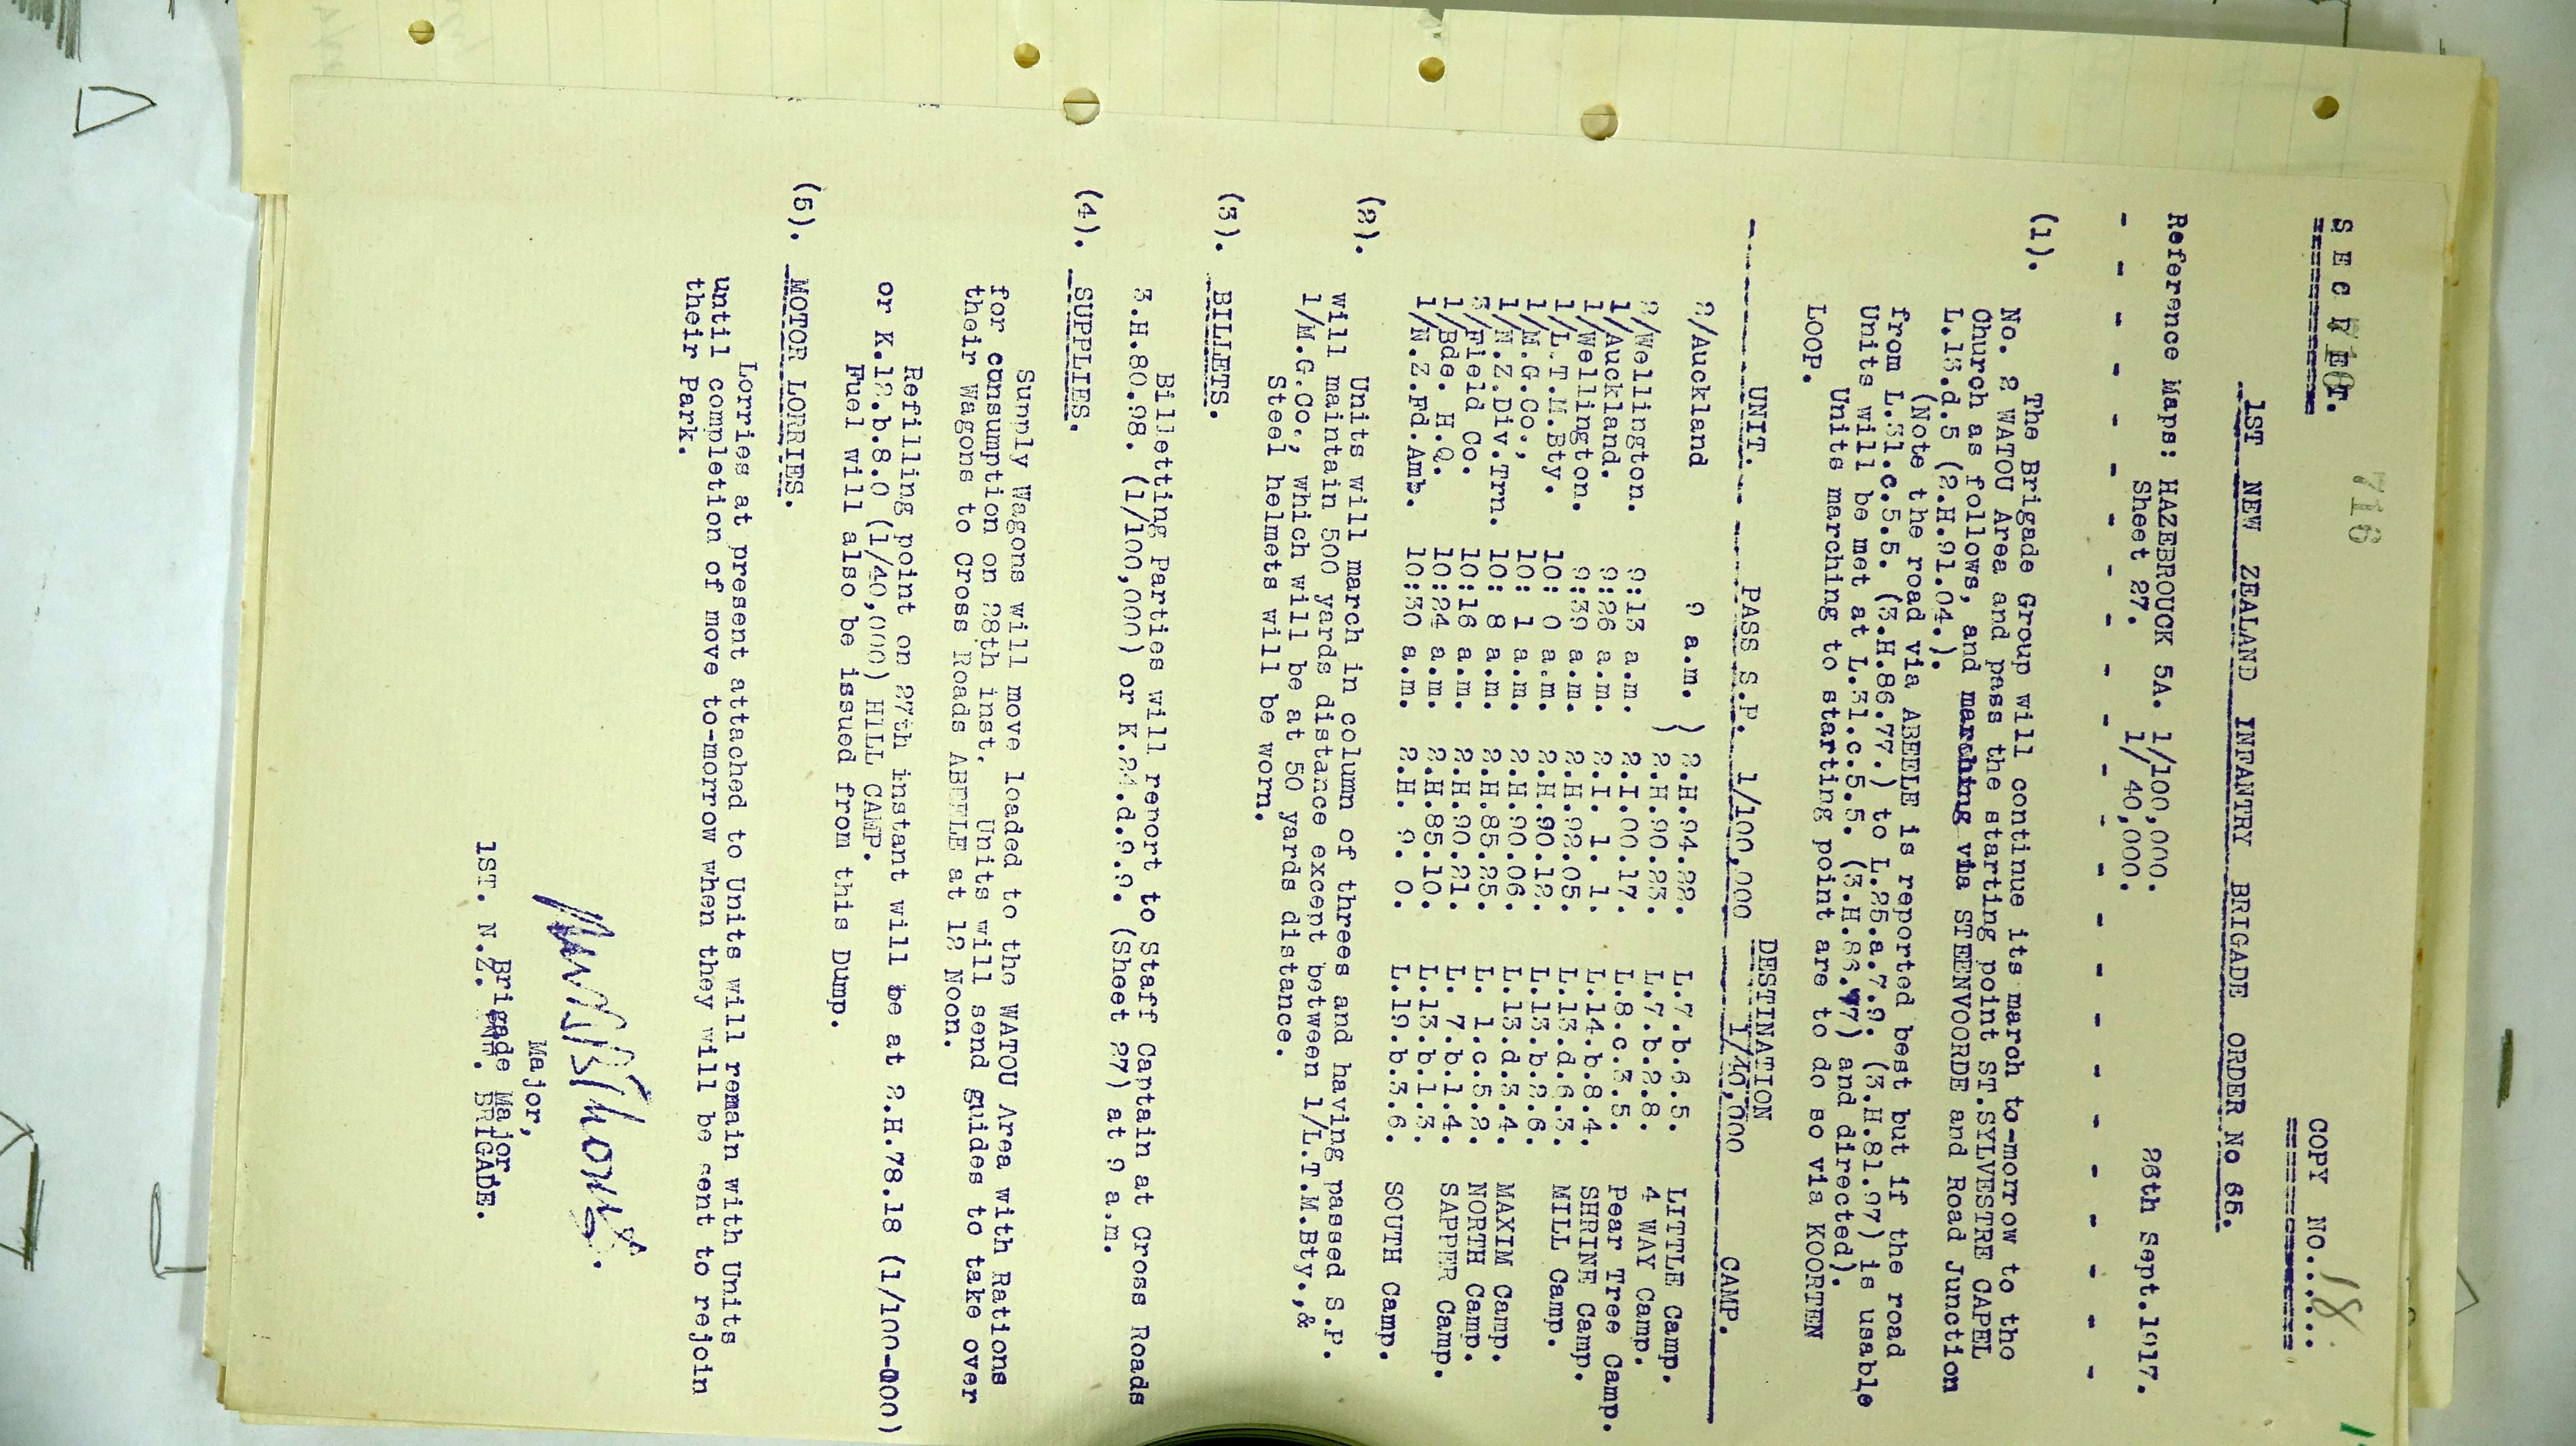 716
S E C R E T.
COPY NO. 18
1ST NEW ZEALAND INFANTRY BRIGADE ORDER No 65.
26th Sept.1917.
Reference Maps: HAZEBROUCK 5A. 1/100,000.
Sheet 27. 1/ 40,000.
(1). The Brigade Group will continue its march to-morrow to the
No. 2 WATOU Area and pass the starting point ST.SYLVESTRE CAPEL
Church as follows, and marching via STEENVOORDE and Road Junction
L.13.d.5 (2.H.91.04.).
(Note the road via ABEELE is reported best but if the road
from L.31.c.5.5. (3.H.86.77.) to L.25.a.7.9. (3.H.81.97) is usable
Units will be met at L.31.c.5.5. (3.H.86.77) and directed).
Units marching to starting point are to do so via KOORTEN
LOOP.
DESTINATION
UNIT. PASS S.P. 1/100,000 1/40,000 CAMP.
2/Auckland 9 a.m. ) 2.H.94.22. L.7.b.6.5. LITTLE Camp.
) 2.H.90.23. L.7.b.2.8. 4 WAY Camp.
2/Wellington. 9:13 a.m. 2.I.00.17. L.8.c.3.5. Pear Tree Camp.
1/Auckland. 9:26 a.m. 2.I. 1. 1. L.14.b.8.4. SHRINE Camp.
1/Wellington. 9:39 a.m. 2.H.92.05. L.13.d.6.3. MILL Camp.
1/L.T.M.Bty. 10: 0 a.m. 2.H.90.12. L.13.b.2.6.
1/M.G.Co., 10: 1 a.m. 2.H.90.06. L.13.d.3.4. MAXIM Camp.
1/N.Z.Div.Trn. 10: 8 a.m. 2.H.85.25. L. 1.c.5.2. NORTH Camp.
3/Field Co. 10:16 a.m. 2.H.90.21. L. 7.b.1.4. SAPPER Camp.
1/Bde. H.Q. 10:24 a.m. 2.H.85.10. L.13.b.1.3.
1/N.Z.Fd.Amb. 10:30 a.m. 2.H. 9. 0. L.19.b.3.6. SOUTH Camp.
(2). Units will march in column of threes and having passed S.P.
will maintain 500 yards distance except between 1/L.T.M.Bty.,&
1/M.G.Co., which will be at 50 yards distance.
Steel helmets will be worn.
(3). BILLETS.
Billetting Parties will report to Staff Captain at Cross Roads
3.H.80.98. (1/100,000) or K.24.d.9.9. (Sheet 27) at 9 a.m.
(4). SUPPLIES.
Supply Wagons will move loaded to the WATOU Area with Rations
for consumption on 28th inst. Units will send guides to take over
their Wagons to Cross Roads ABEELE at 12 Noon.
Refilling point on 27th instant will be at 2.H.78.18 (1/100-000)
or K.12.b.8.0 (1/40,000) HILL CAMP.
Fuel will also be issued from this Dump.
(5). MOTOR LORRIES.
Lorries at present attached to Units will remain with Units
until completion of move to-morrow when they will be sent to rejoin
their Park.
Major,
Brigade Major.
1ST. N.Z. INF. BRIGADE.